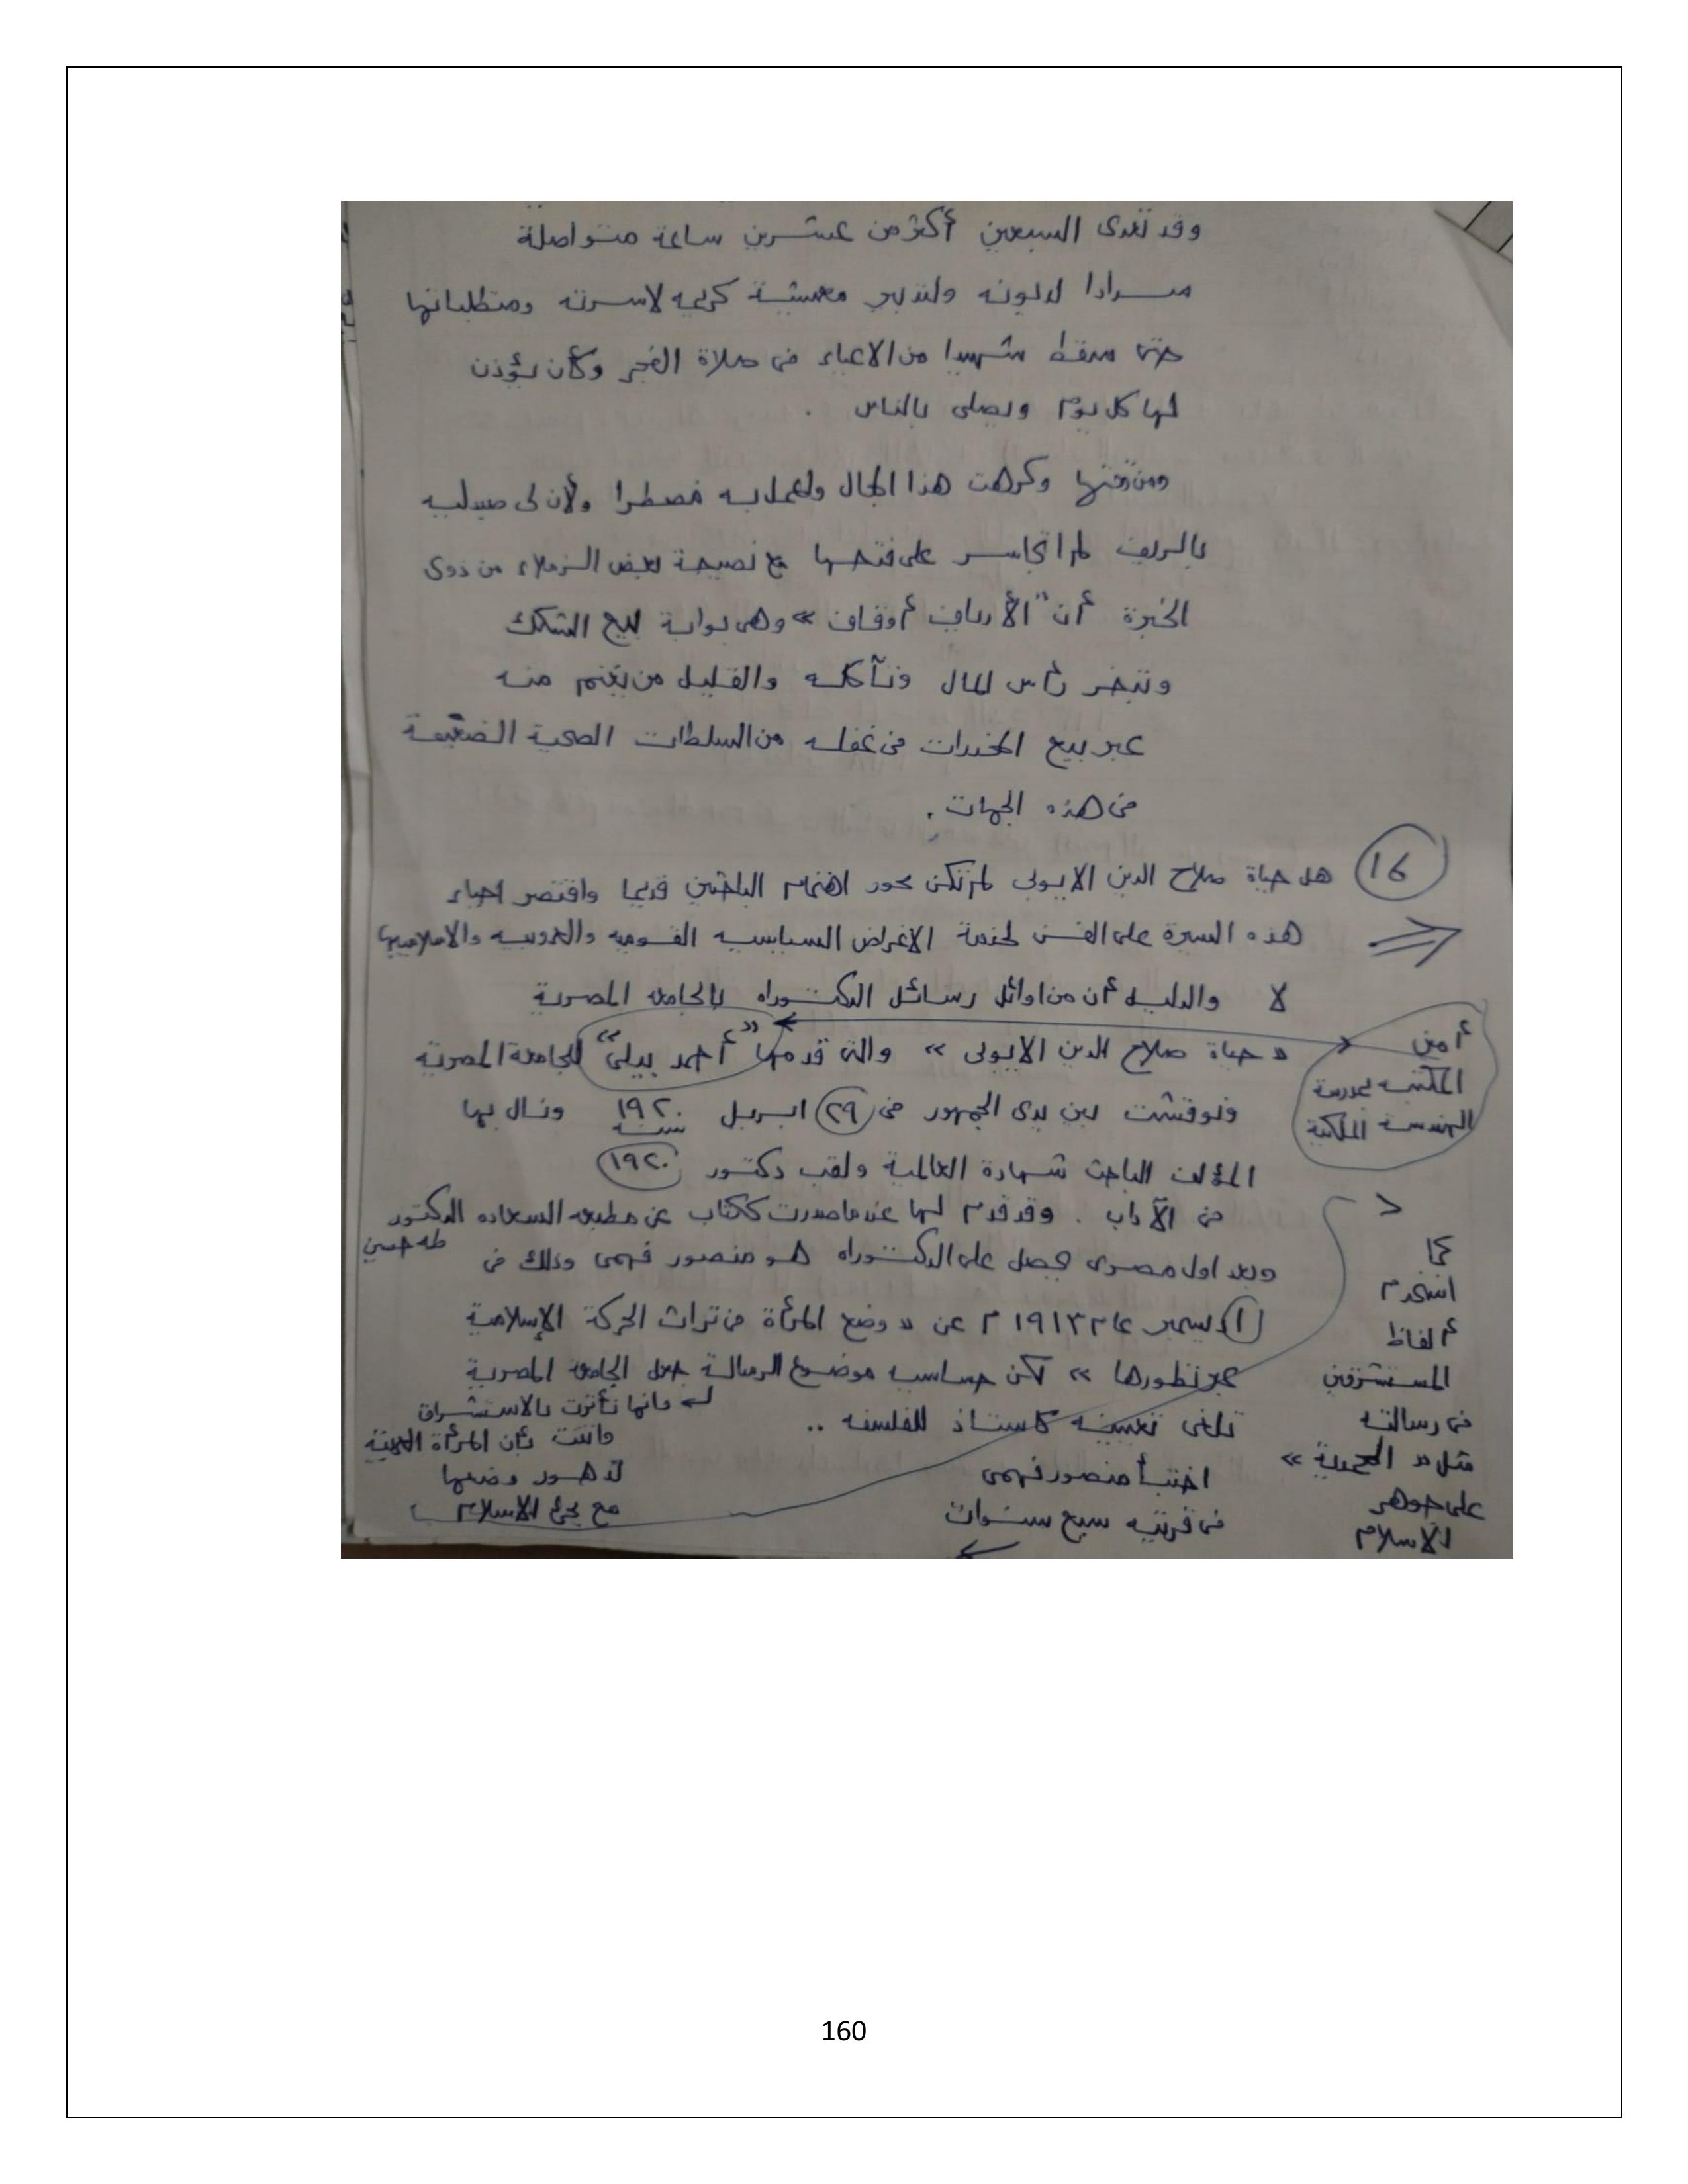 وقد تعدى السبعين أكثر من عشرين ساعة متواصلة
سدادا لديونه ولتدبير معيشة كريمه لاسرته ومتطلباتها
حتى سقط شهيدا من الاعياء فى صلاة الفجر وكأن يؤذن
لها كل يوم ويصلى بالناس .
ومن وقتها وكرهت هذا المجال ولعمل به مضطرا ولأن لى صيدليه
بالريف لم اتجاسر على فتحها مع نصيحة بعض الزملاء من ذوى
الخبرة أن "الأرياف أوقاف » وهى بوابة لبيع الشكك
وتبخر رأس المال وتآكله والقليل من يغنم منه
عبر بيع المخدرات فى غفله من السلطات الصحية الضعيفة
فى هذه الجهات .
16 هل حياة صلاح الدين الايوبى لم تكن محور اهتمام الباحثين قديما واقتصر احياء
هذه السيرة على الفن لخدمة الاغراض السياسيه القوميه والعروبيه والاسلاميه؟
لا والدليل أن من اوائل رسائل الدكتوراه بالجامعه المصرية
« حياة صلاح الدين الايوبى » والتى قدمها "أحمد بيلى" للجامعة المصرية
أمين
المكتبه بمدرسة
الهندسه الملكية
ونوقشت بين يدى الجمهور فى ٢٩ ابريل سنه ١٩٢٠ ونال بها
المؤلف الباحث شهادة العالمية ولقب دكتور ١٩٢٠
فى الآداب . وقد قدم لها عندما صدرت ككتاب عن مطبعه السعاده الدكتور
طه حسين
ويعد اول مصرى يحصل على الدكتوراه هو منصور فهمى وذلك فى
١ ديسمبر عام ١٩١٣ م عن « وضع المرأة فى تراث الحركة الإسلامية
عبر تطورها » لكن حساسيه موضوع الرسالة جعل الجامعه المصرية
تلغى تعيينه كاستاذ للفلسفه ..
لـه فانها تأثرت بالاستشراق
وانتهت بأن المرأة العربية
تدهور وضعها
مع مجئ الاسلام
اختبأ منصور فهمى
فى قريته سبع سنوات
كما
استخدم
ألفاظ
المستشرقين
فى رسالته
مثل « المحمدية »
على جوهر
الاسلام
160